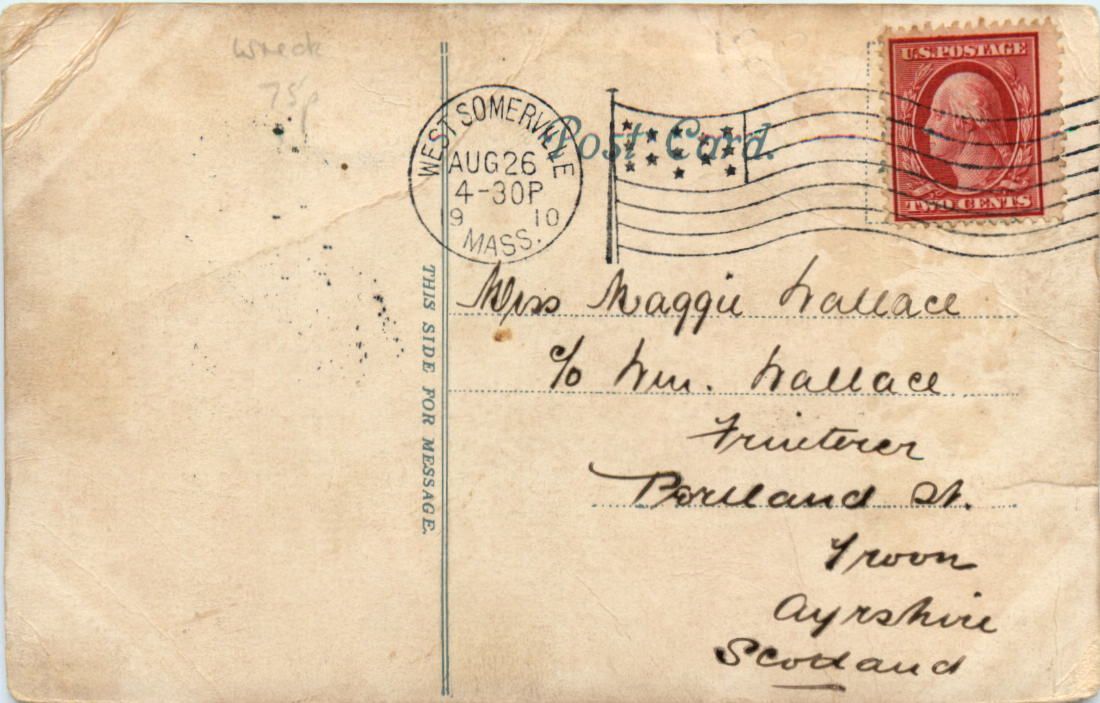 Wreck
75p
U.S. POSTAGE
TWO CENTS
WEST SOMERVILLE
AUG 26
4-30P
19 10
MASS.
Post Card.
THIS SIDE FOR MESSAGE.
Miss Maggie Wallace
c/o Wm. Wallace
Fruiterer
Portland St.
Troon
Ayrshire
Scotland